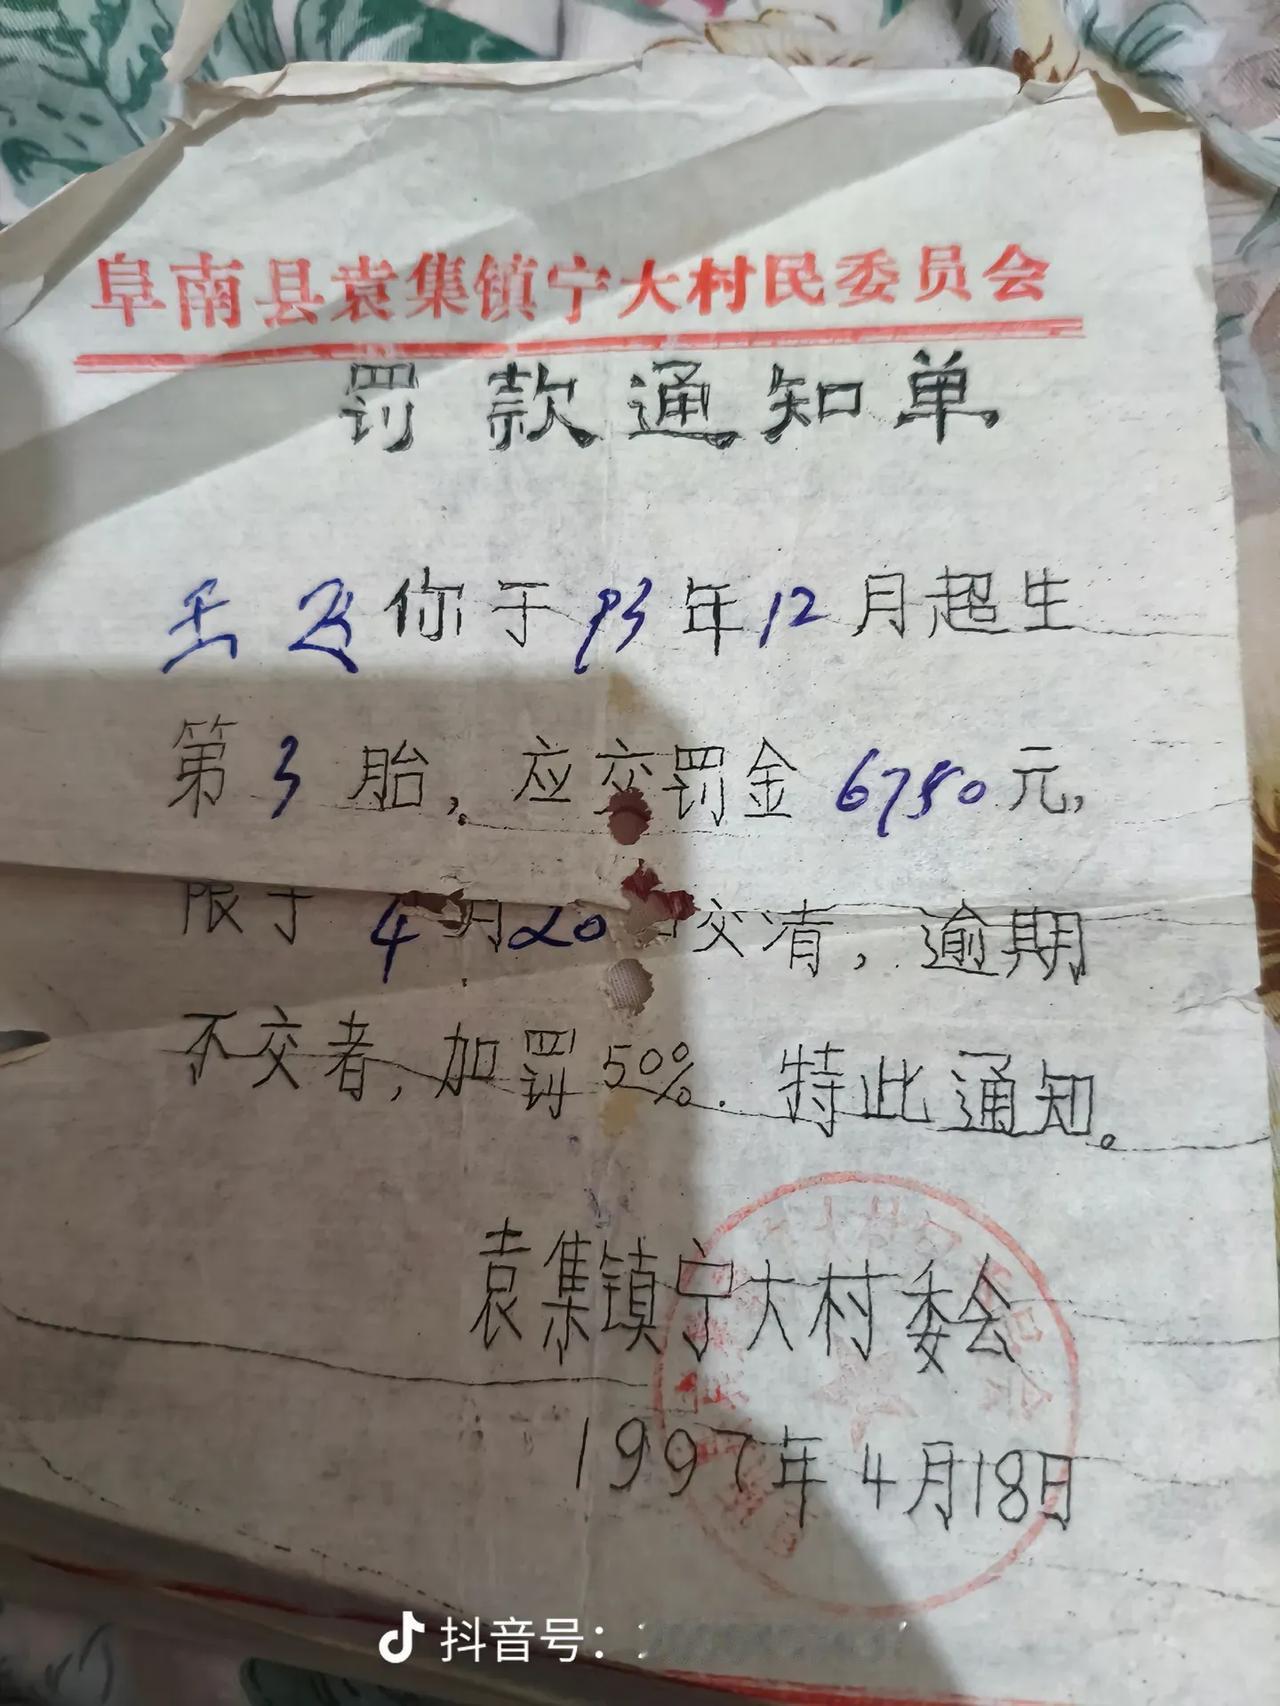 阜南县袁集镇宁大村民委员会
罚款通知单
王飞你于93年12月超生
第3胎，应交罚金6750元，
限于4月20日交清，逾期
不交者，加罚50%.特此通知。
袁集镇宁大村委会
1997年4月18日
抖音号：